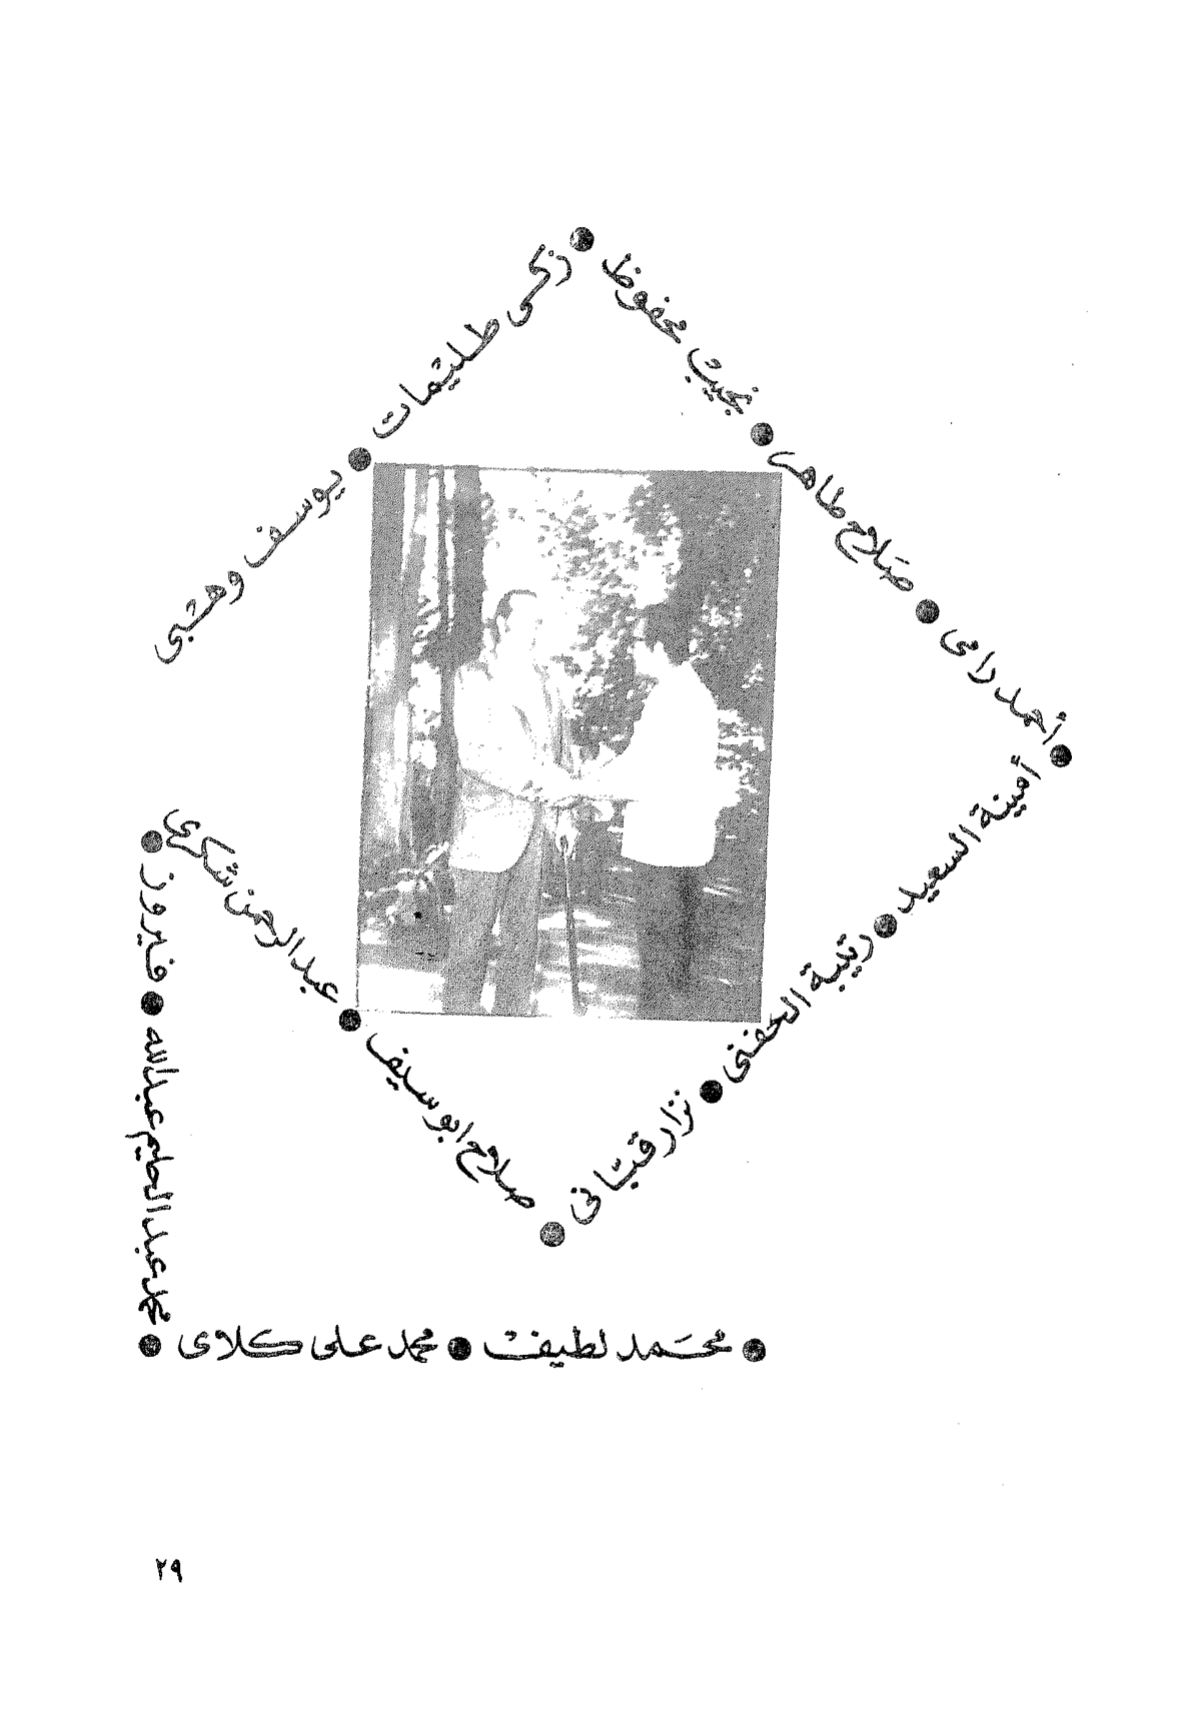 ● زكى طليمات
● يوسف وهبى
نجيب محفوظ
● صلاح طاهر
● أحمد رامى
● أمينة السعيد
● رتيبة الحفنى
● نزار قبانى
● صلاح ابو سيف
● عبد الرحمن شكرى
● فايروز
● محمد عبد الحليم عبد الله
● محمد لطيف ● محمد على كلاى
٢٩